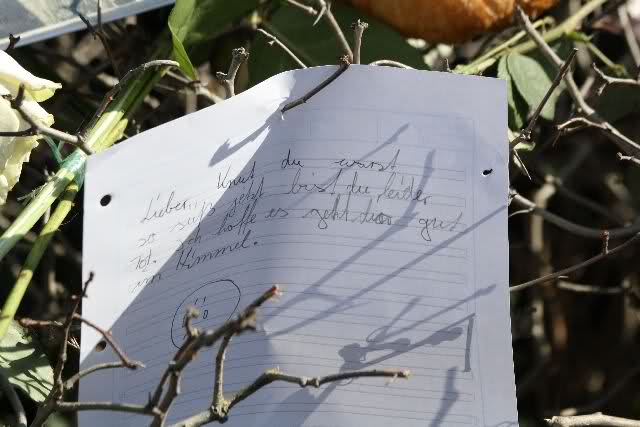 Lieber Knut du warst
so süß jetzt bist du leider
Tot. Ich hoffe es geht dir gut
im Himmel.